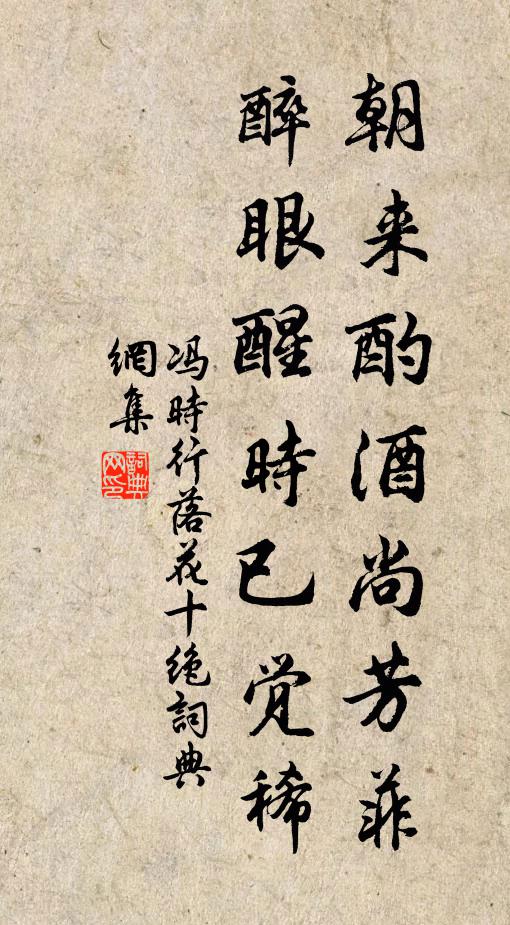 朝来酌酒尚芳菲
醉眼醒時已觉稀
冯時行落花十绝詞典
網集
詞典
网印